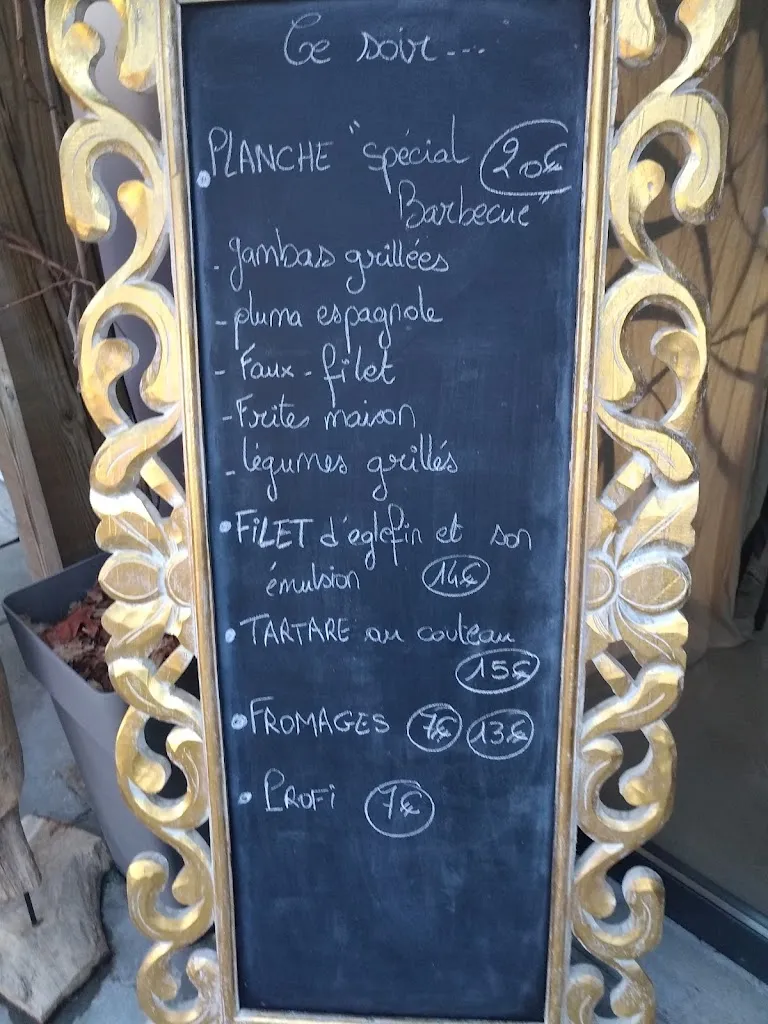 Ce soir...
• PLANCHE "spécial 20€
Barbecue"
- gambas grillées
- pluma espagnole
- Faux-filet
- Frites maison
- légumes grillés
• FiLET d'eglefin et son
émulsion 14€
• TARTARE au couteau
15€
• FROMAGES 7€ 13€
• PROFi 7€